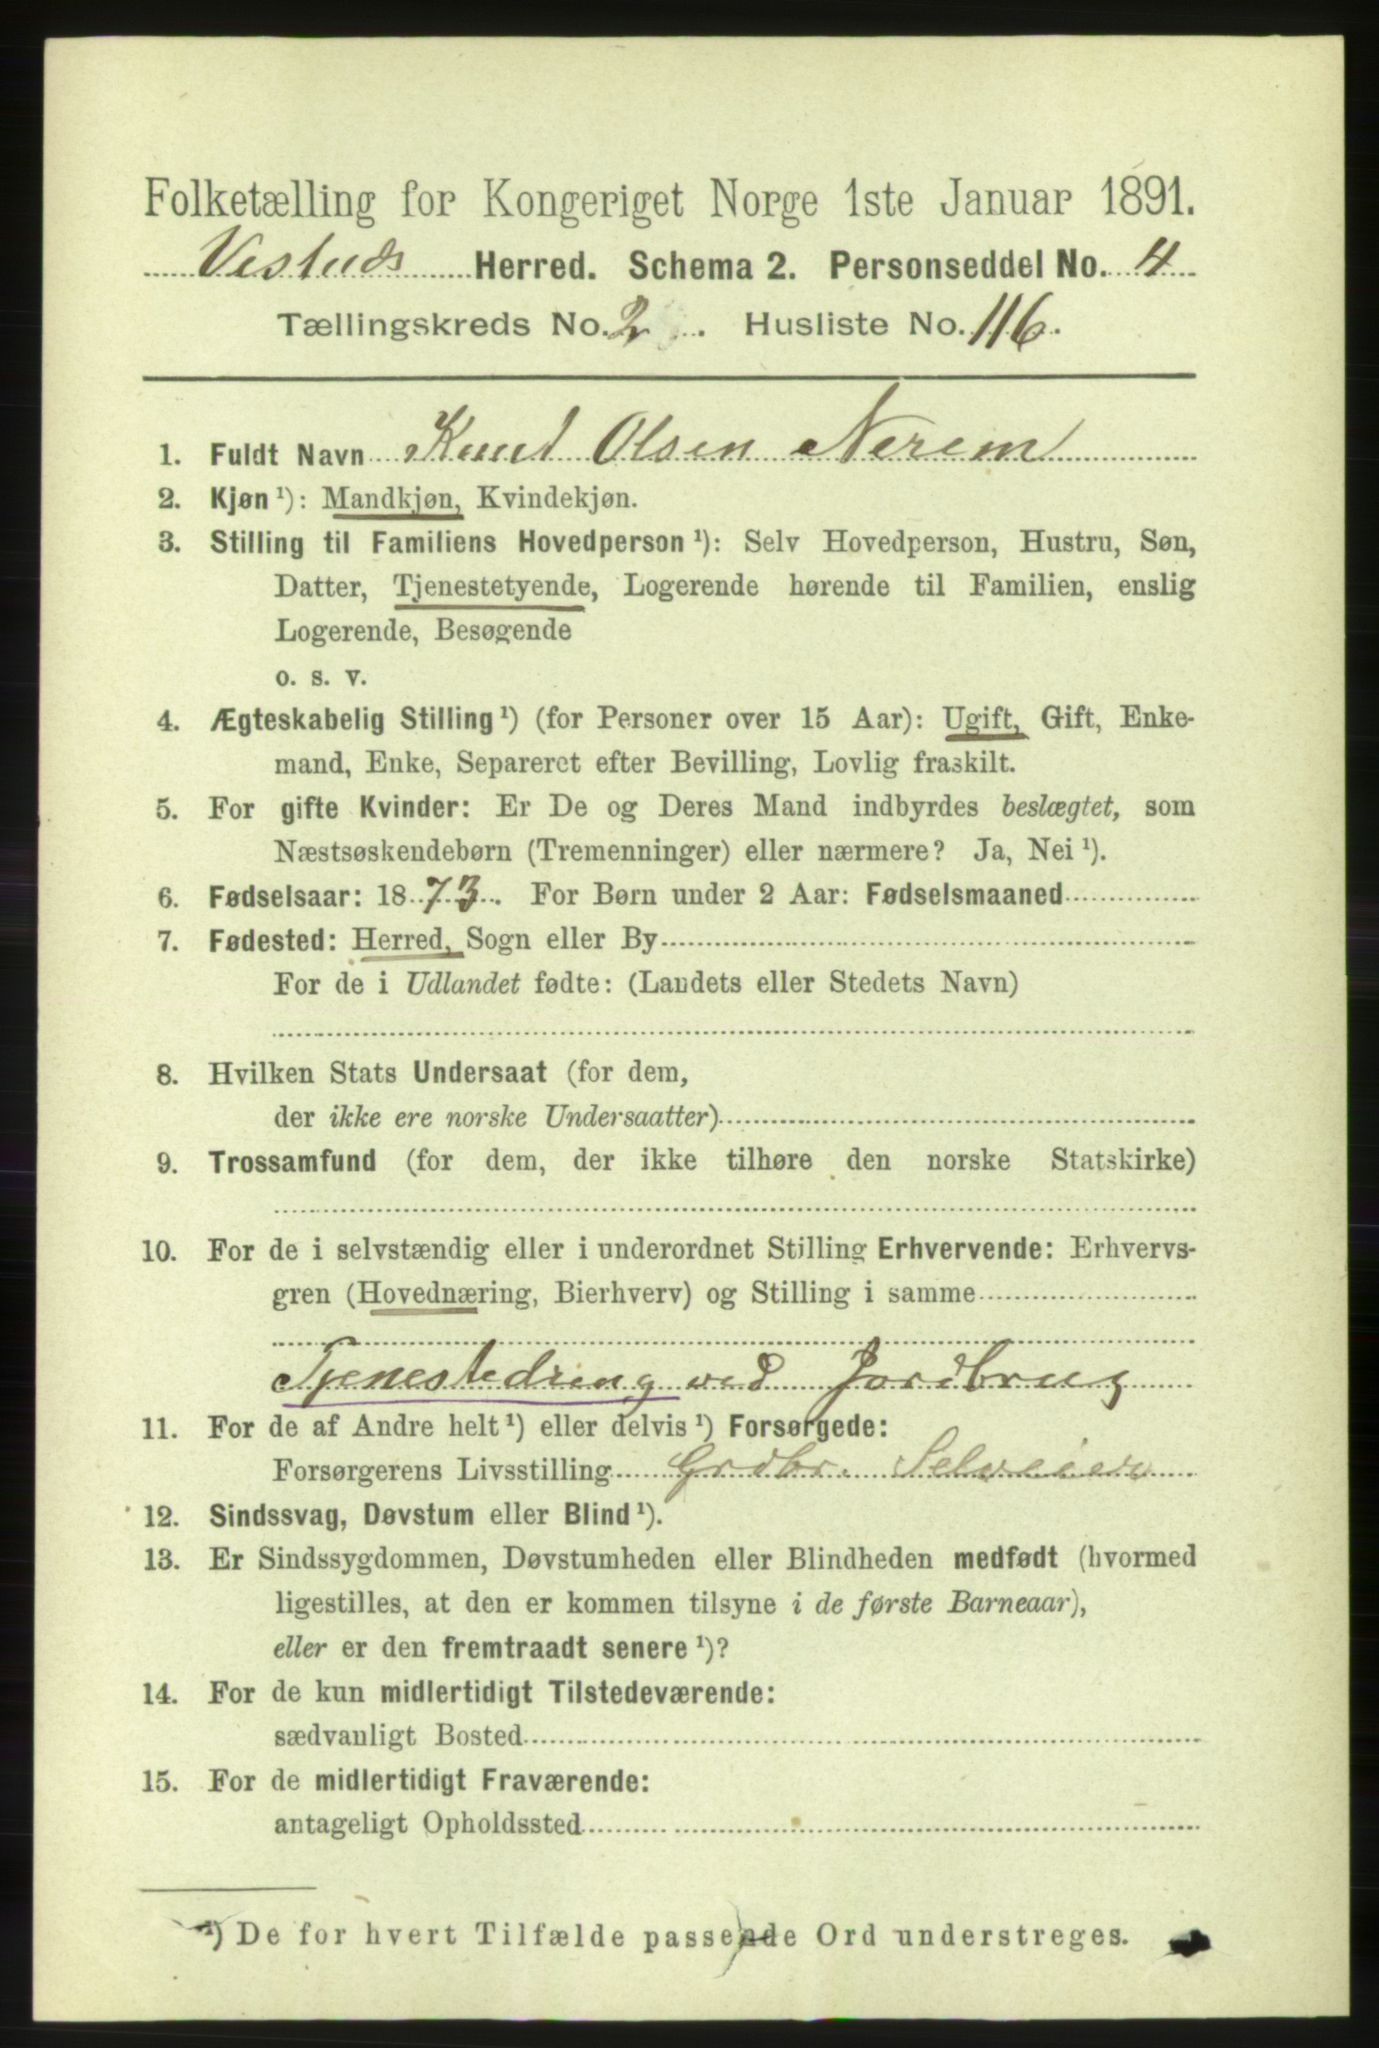 Folketælling for Kongeriget Norge 1ste Januar 1891.
Vestnes Herred. Schema 2. Personseddel No. 4
Tællingskreds No. 2. Husliste No. 116.
1. Fuldt Navn Knud Olsen Nerem
2. Kjøn ¹): Mandkjøn, Kvindekjøn.
3. Stilling til Familiens Hovedperson ¹): Selv Hovedperson, Hustru, Søn,
Datter, Tjenestetyende, Logerende hørende til Familien, enslig
Logerende, Besøgende
o. s. v.
4. Ægteskabelig Stilling ¹) (for Personer over 15 Aar): Ugift, Gift, Enke-
mand, Enke, Separeret efter Bevilling, Lovlig fraskilt.
5. For gifte Kvinder: Er De og Deres Mand indbyrdes beslægtet, som
Næstsøskendebørn (Tremenninger) eller nærmere? Ja, Nei ¹).
6. Fødselsaar: 1873. For Børn under 2 Aar: Fødselsmaaned
7. Fødested: Herred, Sogn eller By
For de i Udlandet fødte: (Landets eller Stedets Navn)
8. Hvilken Stats Undersaat (for dem,
der ikke ere norske Undersaatter)
9. Trossamfund (for dem, der ikke tilhøre den norske Statskirke)
10. For de i selvstændig eller i underordnet Stilling Erhvervende: Erhvervs-
gren (Hovednæring, Bierhverv) og Stilling i samme
Tjenestedreng ved Jordbrug
11. For de af Andre helt ¹) eller delvis ¹) Forsørgede:
Forsørgerens Livsstilling Grdbr. Selveier
12. Sindssvag, Døvstum eller Blind ¹).
13. Er Sindssygdommen, Døvstumheden eller Blindheden medfødt (hvormed
ligestilles, at den er kommen tilsyne i de første Barneaar),
eller er den fremtraadt senere ¹)?
14. For de kun midlertidigt Tilstedeværende:
sædvanligt Bosted
15. For de midlertidigt Fraværende:
antageligt Opholdssted
¹) De for hvert Tilfælde passende Ord understreges.